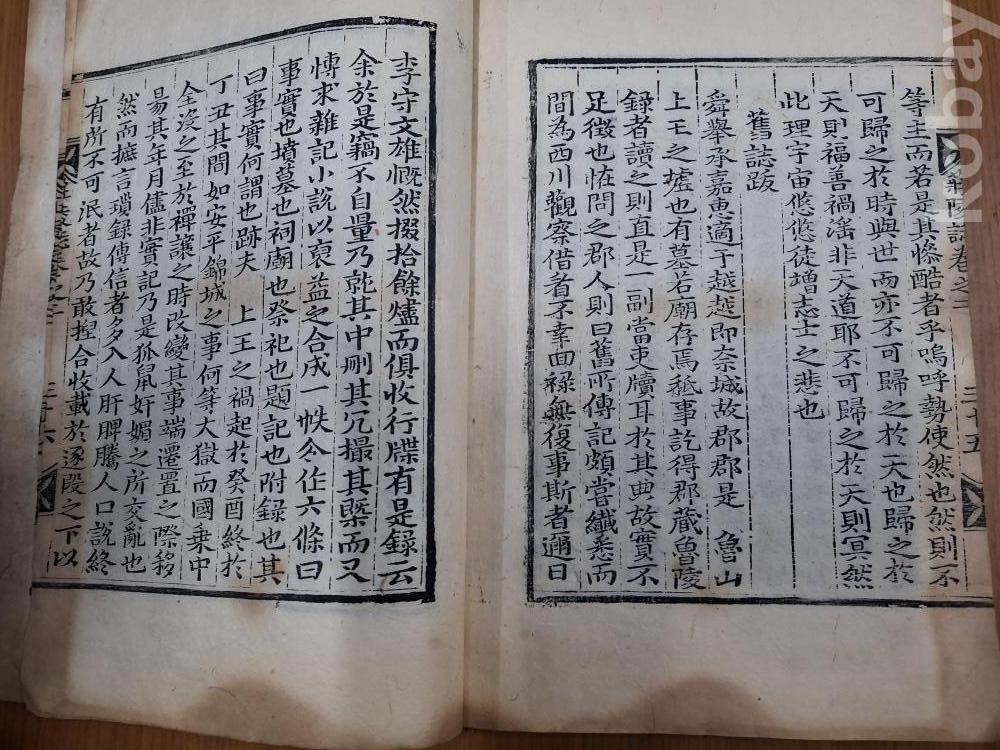 等主而若是其慘酷者乎嗚呼勢使然也然則不
可歸之於時與世而亦不可歸之於天也歸之於
天則福善禍滛非天道耶不可歸之於天則冥然
此理宇宙悠悠徒增志士之悲也
舊誌跋
舜舉承嘉惠適于越越即奈城故郡郡是 魯山
上王之墟也有墓若廟存焉秪事訖得郡藏魯陵
録者讀之則直是一副當吏牘耳於其典故實不
足徵也恠問之郡人則曰舊所傳記頗嘗纖悉而
間為西川觀察借着不幸回禄無復事斯者邇日
李守文雄慨然掇拾餘燼而俱收行牒有是録云
余於是竊不自量乃就其中刪其冗撮其槩而又
博求雜記小說以裒益之合成一帙今作六條曰
事實也墳墓也祠廟也祭祀也題記也附録也其
曰事實何謂也跡夫 上王之禍起於癸酉終於
丁丑其間如安平錦城之事何等大獄而國乗中
全沒之至於禪讓之時改變其事端遷置之際移
易其年月儘非實記乃是狐鼠奸媚之所交亂也
然而摭言瑣録傳信者多入人肝脾騰人口說終
有所不可泯者故乃敢捏合收載於逐段之下以
三十五
三十六
Kobay